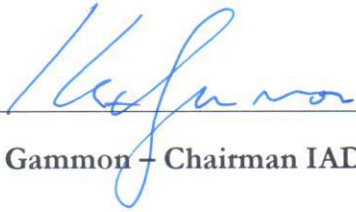 Gammon – Chairman IAD